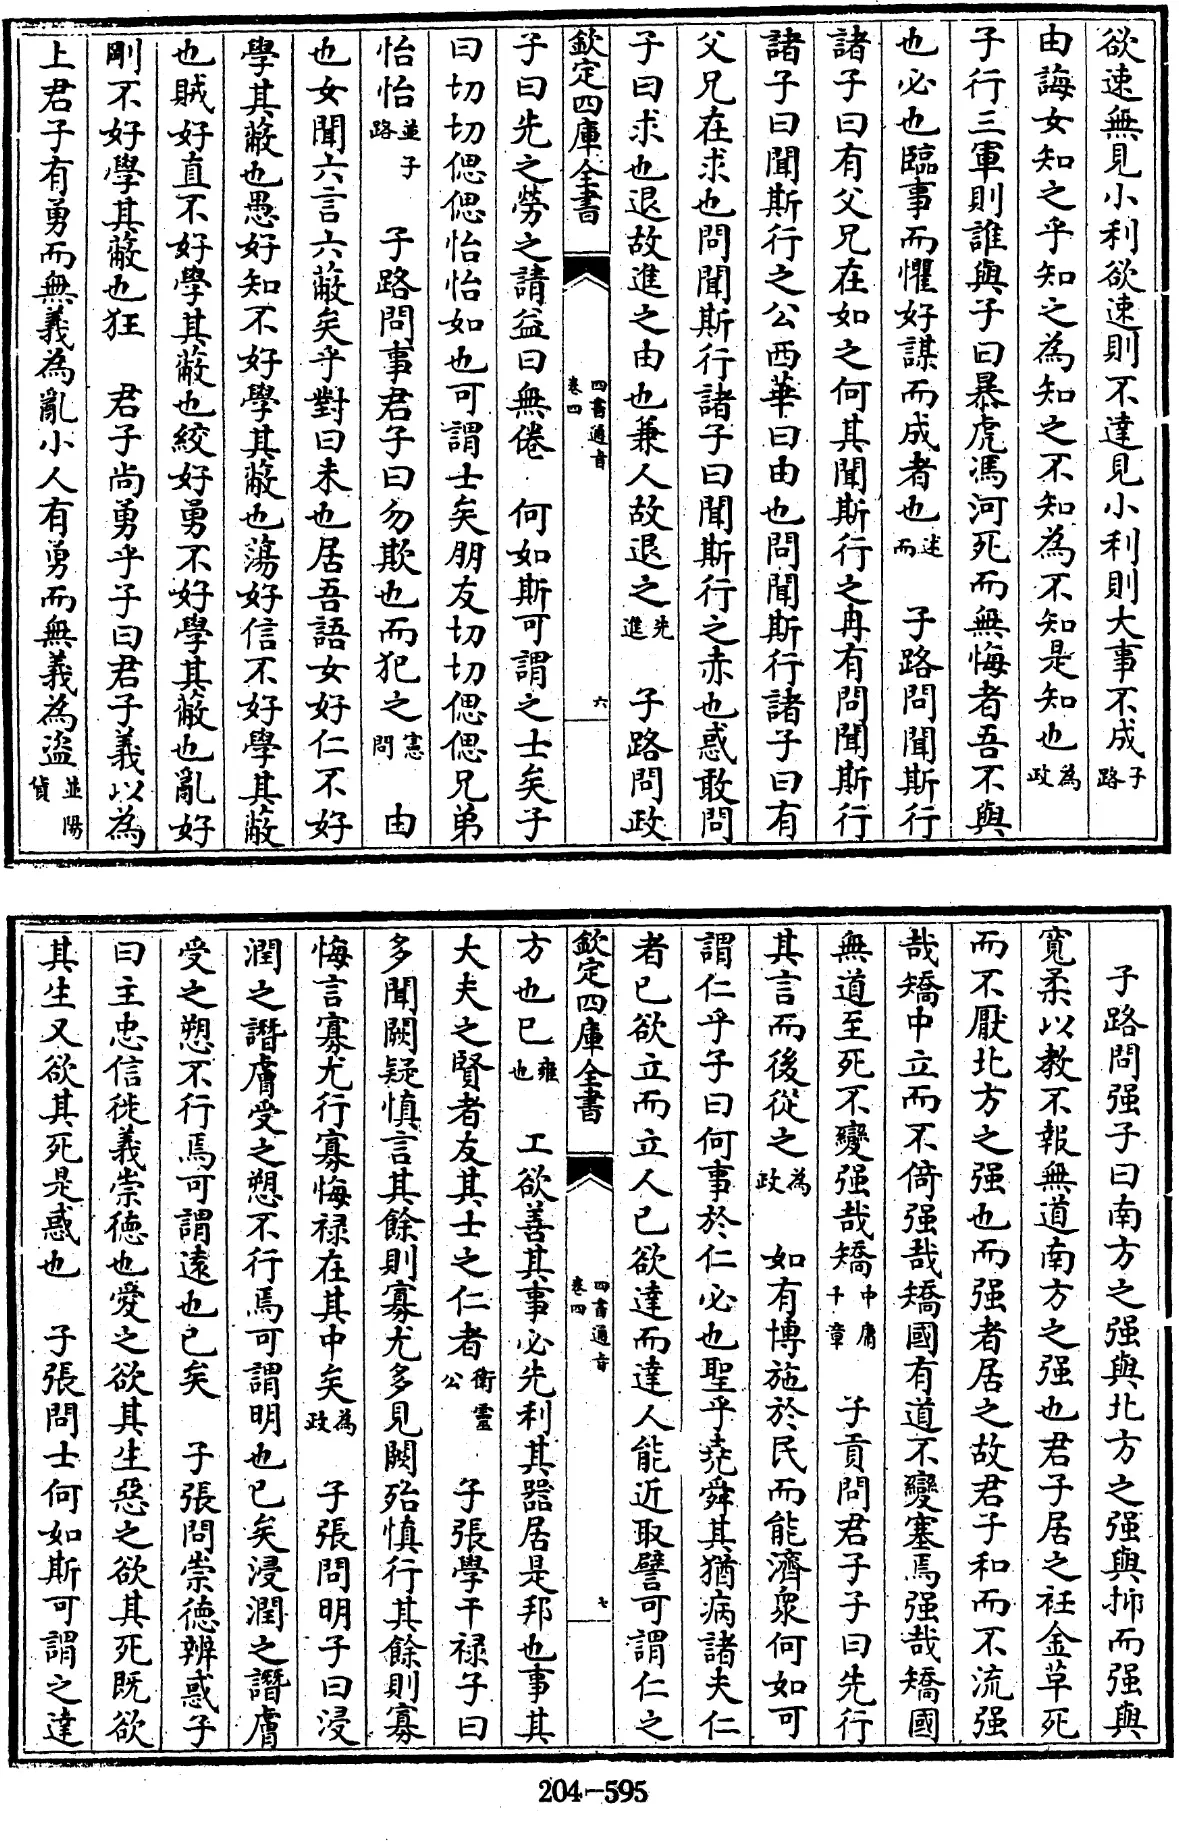 欲速無見小利欲速則不達見小利則大事不成子路
由誨女知之乎知之為知之不知為不知是知也為政
子行三軍則誰與子曰暴虎馮河死而無悔者吾不與
也必也臨事而懼好謀而成者也述而　子路問聞斯行
諸子曰有父兄在如之何其聞斯行之冉有問聞斯行
諸子曰聞斯行之公西華曰由也問聞斯行諸子曰有
父兄在求也問聞斯行諸子曰聞斯行之赤也惑敢問
子曰求也退故進之由也兼人故退之先進　子路問政
欽定四庫全書　四書通旨卷四　六
子曰先之勞之請益曰無倦　何如斯可謂之士矣子
曰切切偲偲怡怡如也可謂士矣朋友切切偲偲兄弟
怡怡並子路　子路問事君子曰勿欺也而犯之憲問　由
也女聞六言六蔽矣乎對曰未也居吾語女好仁不好
學其蔽也愚好知不好學其蔽也蕩好信不好學其蔽
也賊好直不好學其蔽也絞好勇不好學其蔽也亂好
剛不好學其蔽也狂　君子尚勇乎子曰君子義以為
上君子有勇而無義為亂小人有勇而無義為盜並陽貨
子路問强子曰南方之强與北方之强與抑而强與
寛柔以教不報無道南方之强也君子居之衽金革死
而不厭北方之强也而强者居之故君子和而不流强
哉矯中立而不倚强哉矯國有道不變塞焉强哉矯國
無道至死不變强哉矯中庸十章　子貢問君子子曰先行
其言而後從之為政　如有博施於民而能濟衆何如可
謂仁乎子曰何事於仁必也聖乎堯舜其猶病諸夫仁
者已欲立而立人已欲達而達人能近取譬可謂仁之
欽定四庫全書　四書通旨卷四　七
方也已雍也　工欲善其事必先利其器居是邦也事其
大夫之賢者友其士之仁者衛靈公　子張學干禄子曰
多聞闕疑慎言其餘則寡尤多見闕殆慎行其餘則寡
悔言寡尤行寡悔禄在其中矣為政　子張問明子曰浸
潤之譖膚受之愬不行焉可謂明也已矣浸潤之譖膚
受之愬不行焉可謂遠也已矣　子張問崇德辨惑子
曰主忠信徙義崇德也愛之欲其生惡之欲其死既欲
其生又欲其死是惑也　子張問士何如斯可謂之達
204-595